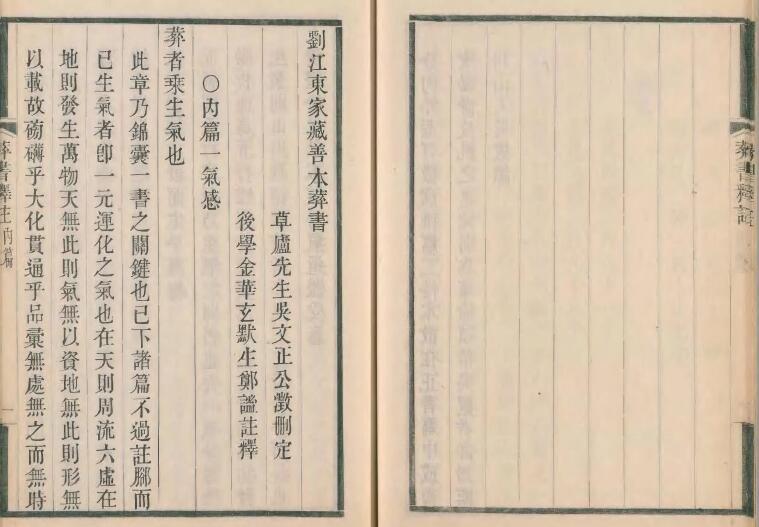 葬書釋註
劉江東家藏善本葬書
草廬先生吳文正公澂刪定
後學金華玄默生鄭謐註釋
〇內篇一氣感
葬者乗生氣也
此章乃錦囊一書之關鍵也已下諸篇不過註腳而
已生氣者卽一元運化之氣也在天則周流六虛在
地則發生萬物天無此則氣無以資地無此則形無
以載故磅礴乎大化貫通乎品彙無處無之而無時
葬書釋註 內篇 一